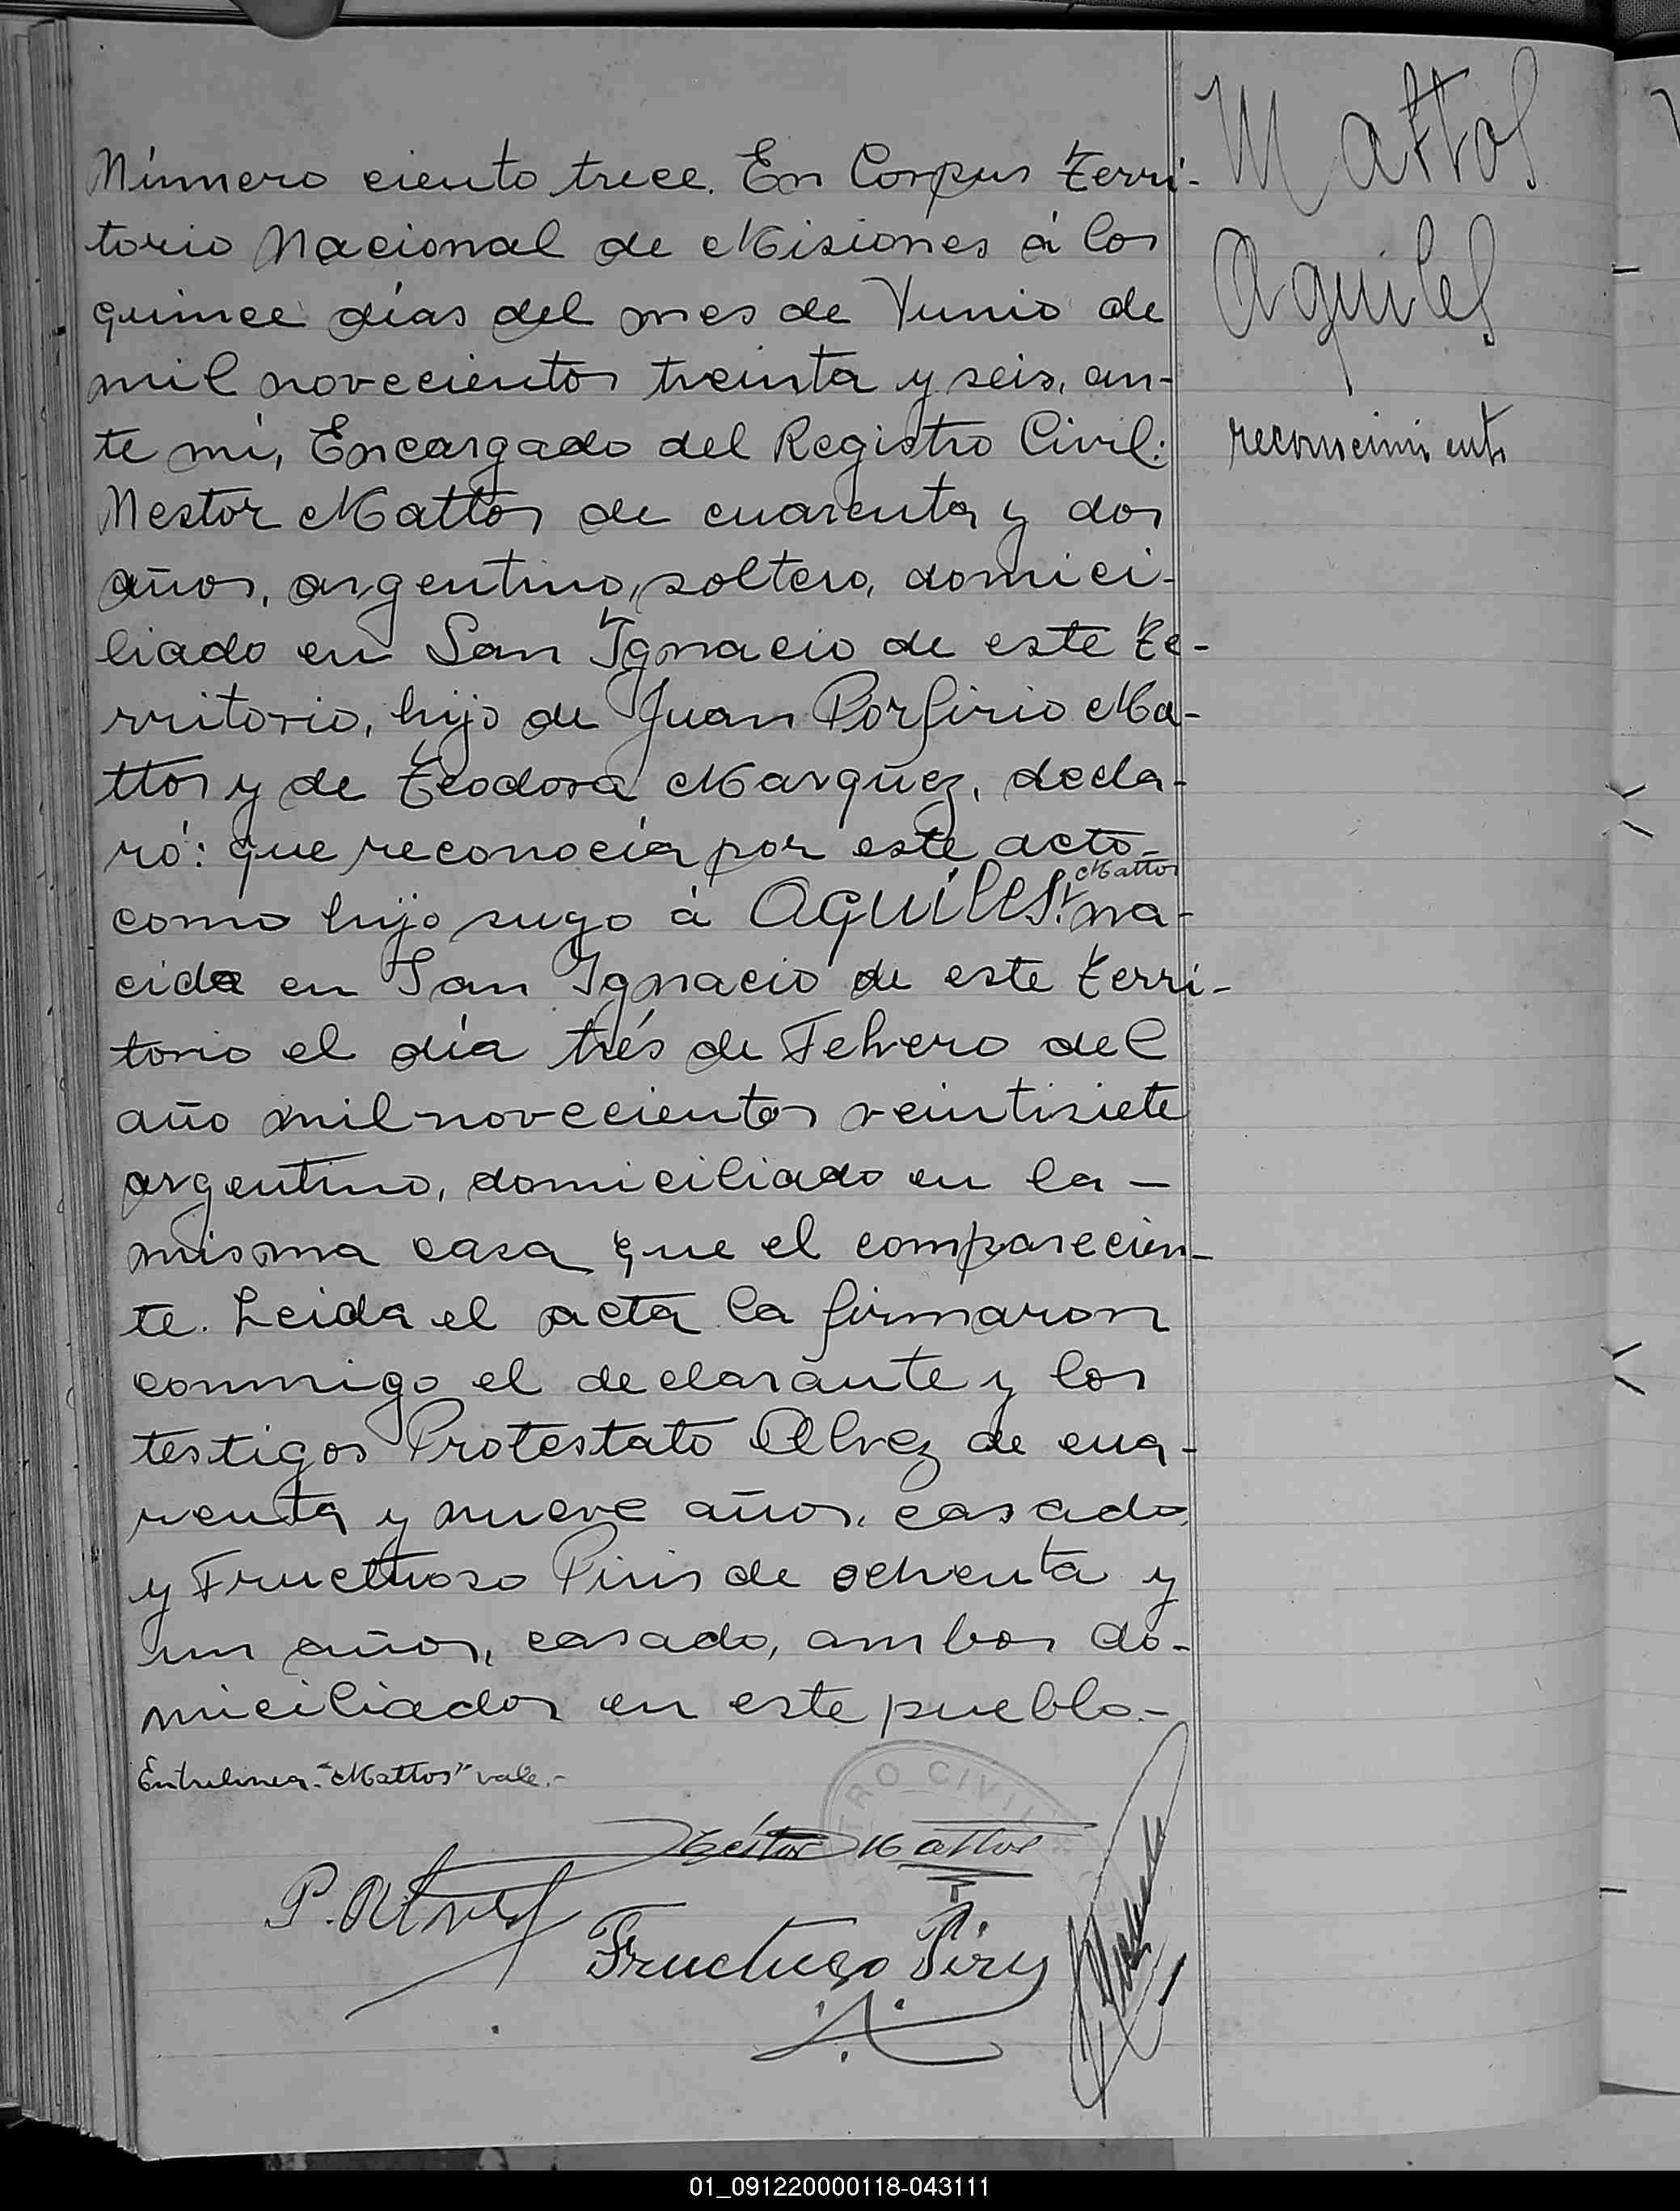 Mattos
Aquiles
reconocimiento
Número ciento trece. En Corpus Terri-
torio Nacional de Misiones á los
quince días del mes de Yunio de
mil novecientos treinta y seis, an-
te mí, Encargado del Registro Civil:
Nestor Mattos de cuarenta y dos
años, argentino, soltero, domici-
liado en San Ygnacio de este Te-
rritorio, hijo de Juan Porfirio Ma-
ttos y de Teodora Marqüez, decla-
ró: que reconocía por este acto-
Mattos
como hijo suyo á AQUILES. na-
cido en San Ygnacio de este Terri-
torio el día trés de Febrero del
año mil novecientos veintisiete
argentino, domiciliado en la -
misma casa que el comparecien-
te. Leida el acta la firmaron
conmigo el declarante y los
testigos Protestato Alvez de cua-
renta y nueve años, casado,
y Fructuoso Piris de ochenta y
un años, casado, ambos do-
miciliados en este pueblo.-
Entrelinea-"Mattos" vale.-
RO CIVIL
Néstor Mattos
P. Alvez
Fructuoso Piris
01_091220000118-043111